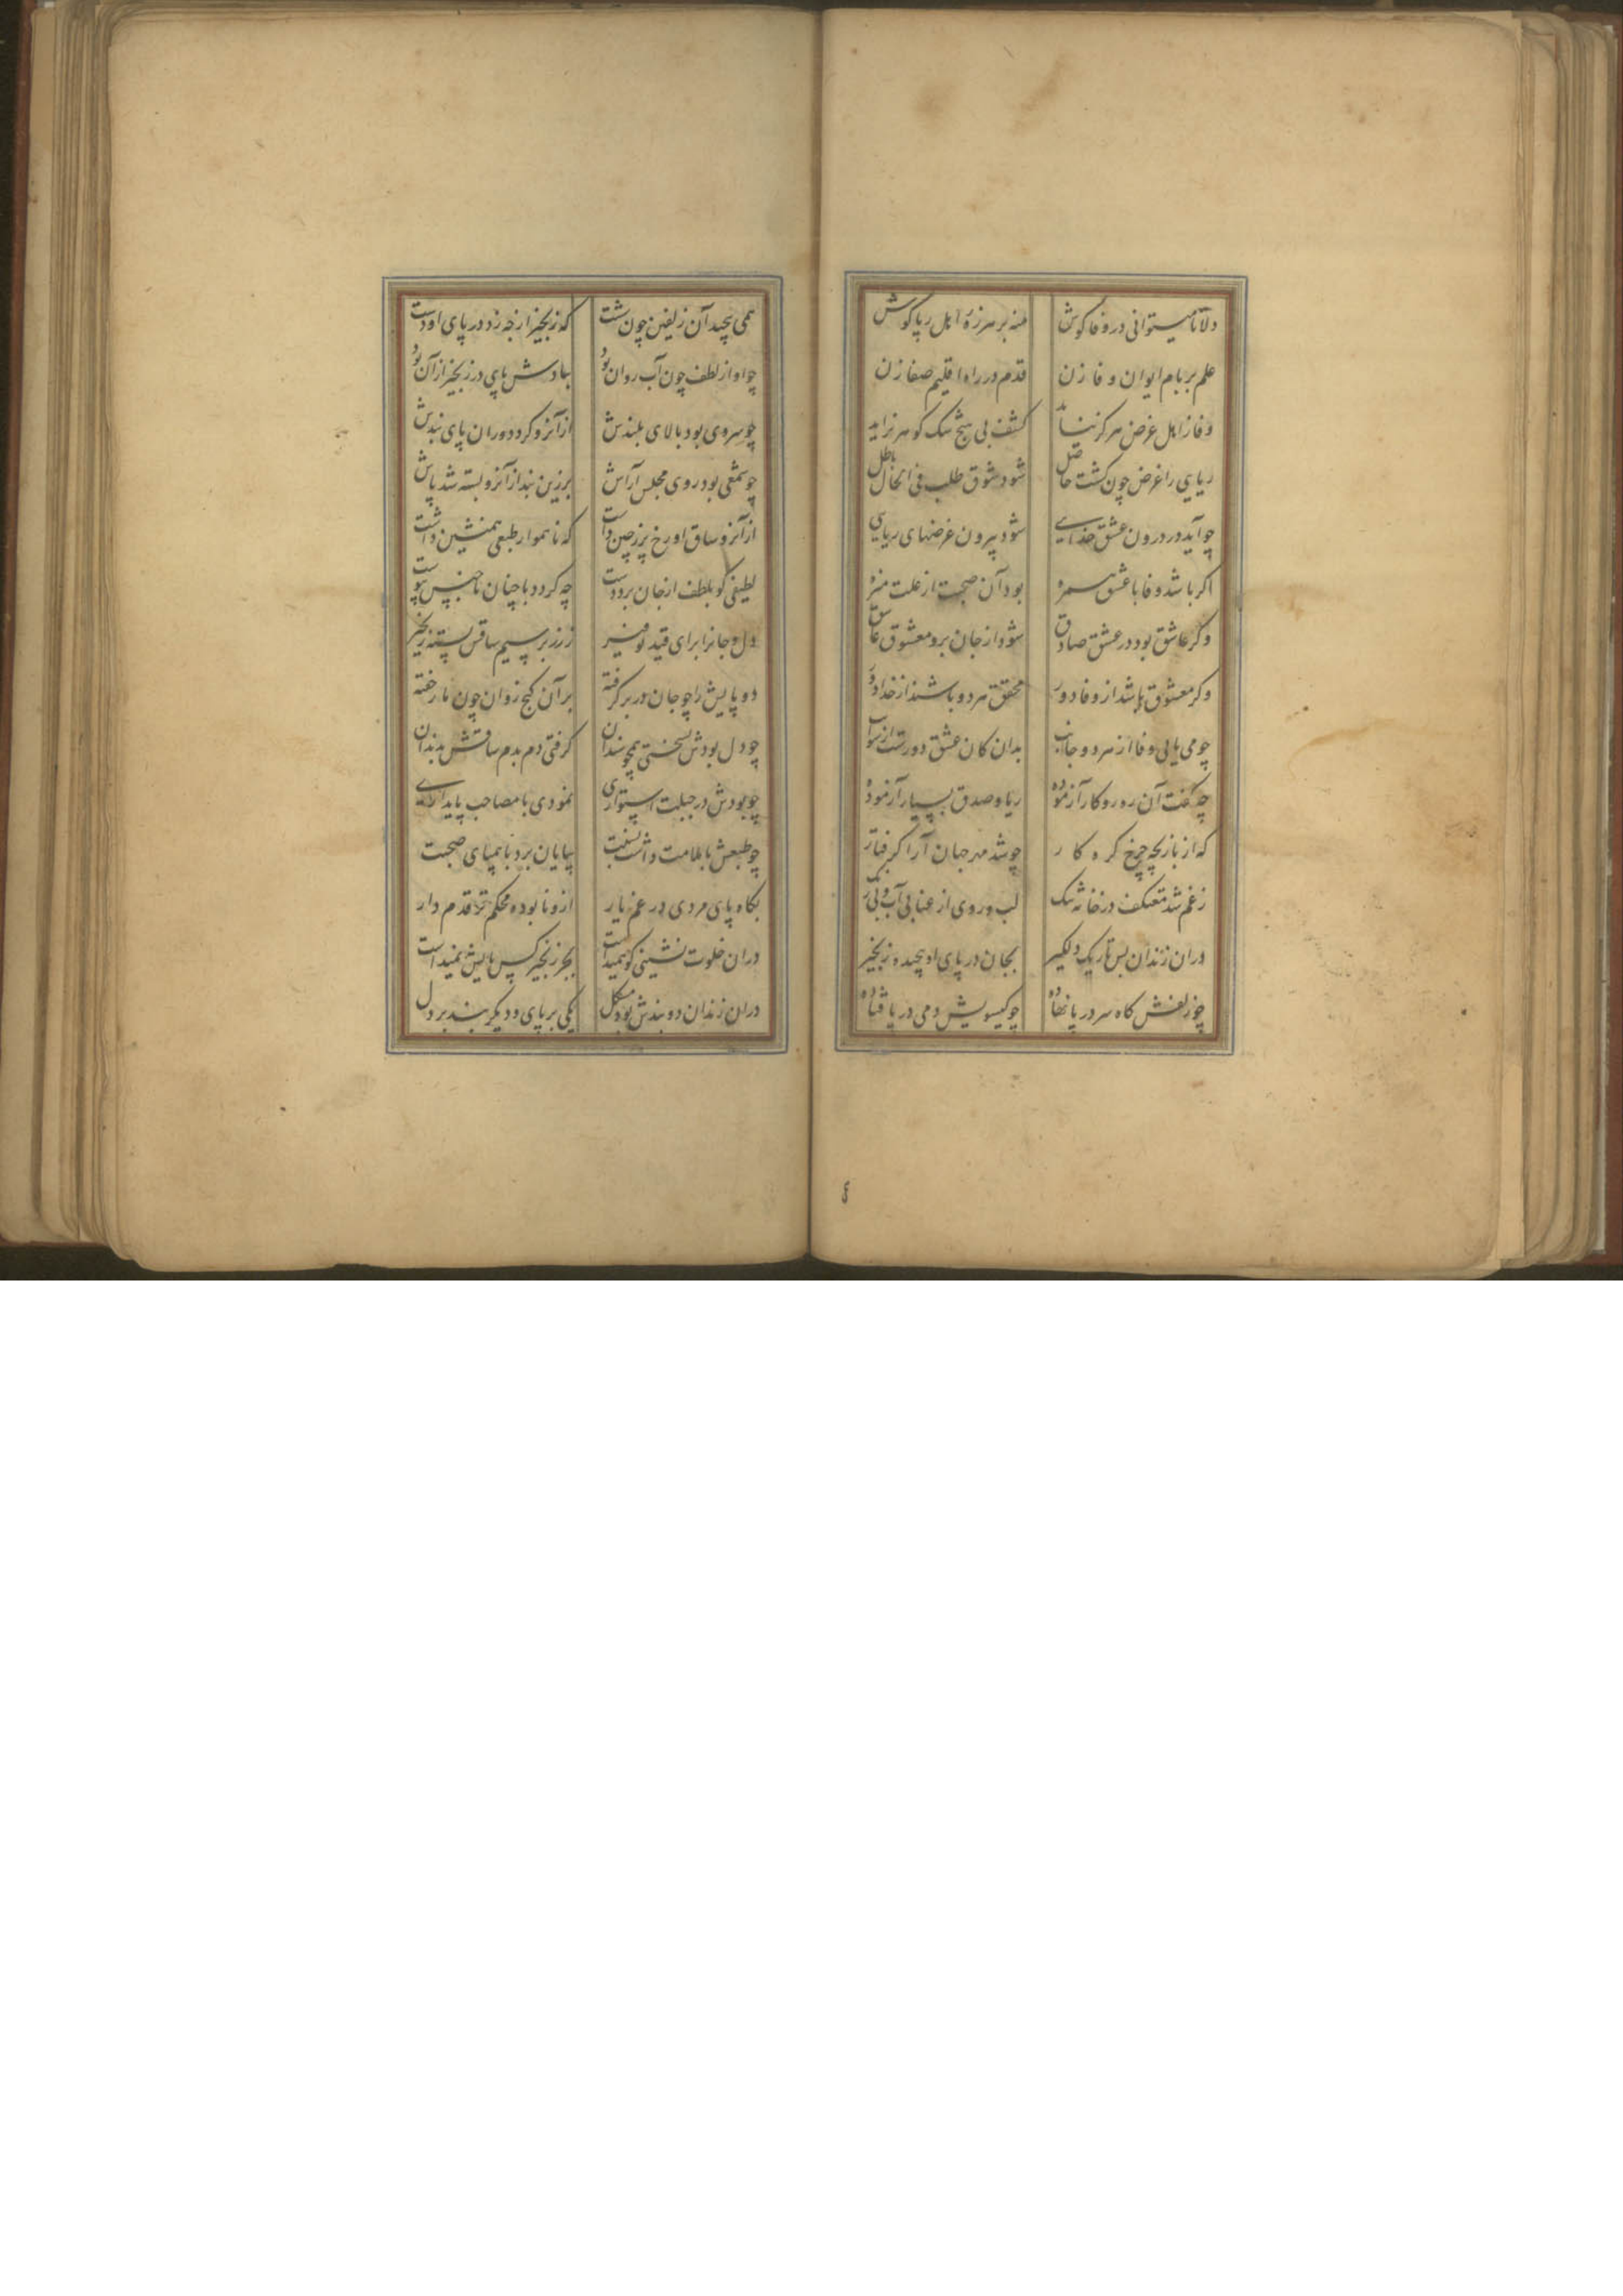 دلا تا میتوانی در وفا کوش منه بر هرزهٔ اهل ریا کوش
علم بر بام ایوان وفا زن قدم در راه اقلیم صفا زن
وفا ز اهل غرض هرکز نیاید کشف بی هیچ شک کوهر نزاید
ریایی را غرض چون کشت حاصل شود شوق طلب فی الحال باطل
چو آید در درون عشق خدایی شود بیرون غرضهای ریایی
اکر باشد وفا با عشق همره بود آن صحبت از علت منزه
وکر عاشق بود در عشق صادق شود از جان برو معشوق عاشق
وکر معشوق باشد از وفا دور محقق هر دو باشند از خدا دور
چو می یابی وفا از هر دو جانب بدان کان عشق دورست از شوایب
چه کفت آن ره رو کار آزموده ریا و صدق بسیار آزموده
که از بازیچه چرخ کره کار چو شد مهر جهان آرا کرفتار
ز غم شد معتکف در خانه تنک لب و روی از عنا بی آب و بی رنک
در ان زندان بس تاریک دلکیر بجان در پای او پیچیده زنجیر
چو زلفش کاه سر در پا نهاده چو کیسویش دمی در پا فتاده
همی پیچید آن زلفین چون شست که زنجیر از چه زد در پای او دست
چو او از لطف چون آب روان بود ببادش پای در زنجیر از آن بود
چو سروی بود بالای بلندش از آنرو کرد دوران پای بندش
چو شمعی بود روی مجلس آراش برزین بند از آنرو بسته شد پاش
از آنرو ساق او رخ پر ز چین داشت که ناهموار طبعی همنشین داشت
لطیفی کو بلطف از جان برد دست چه کردد با چنان ناجنس پیوست
دل و جانرا برای قید توفیر ز زر بر سیم ساقش بسته زنجیر
دو پایش را چو جان در بر کرفته بر آن کنج روان چون مار خفته
چو دل بودش بسختی همچو سندان کرفتی دم بدم ساقش بدندان
چو بودش در جبلت استواری نمودی با مصاحب پایداری
چو طبعش با ملامت داشت نسبت بپایان برد با همپای صحبت
بکاه پای مردی در غم یار ازو نابوده محکم تر قدم دار
در ان خلوت نشینی کو همیداشت بجز زنجیر کس پایش نمیداشت
در ان زندان دو بندش بود مشکل یکی بر پای و دیکر بند بر دل